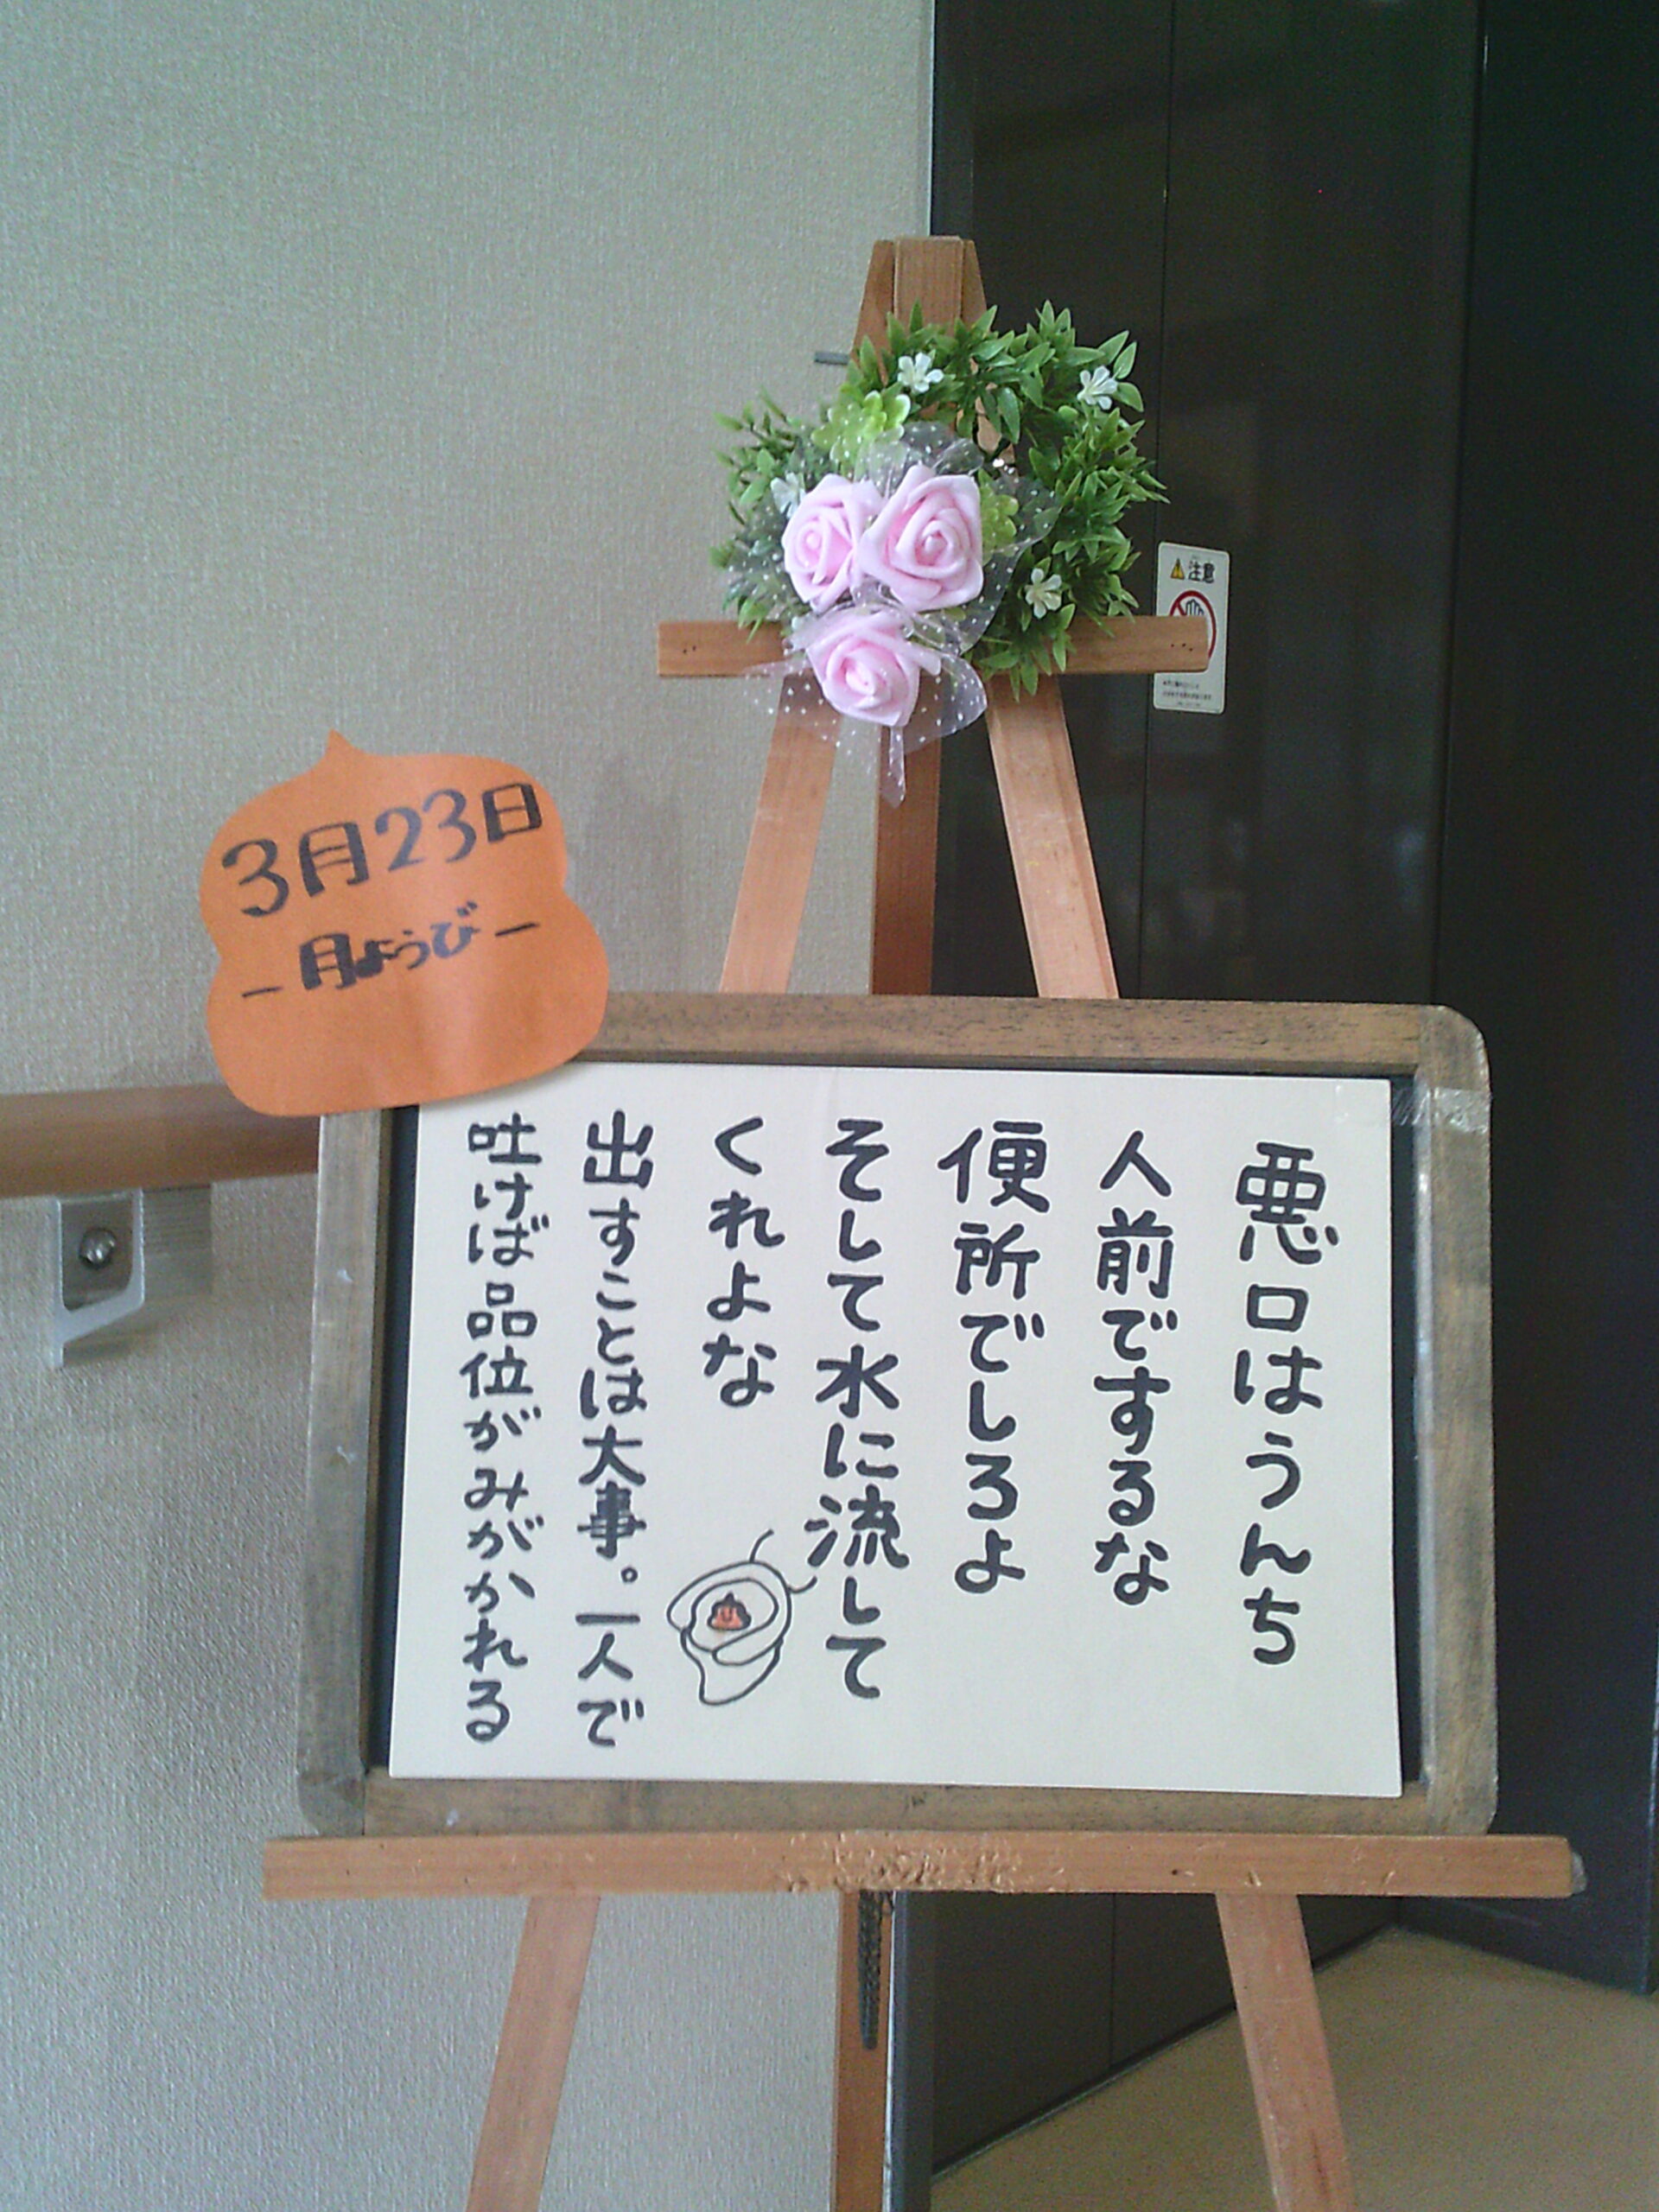 3月23日
－月ようび－
悪口はうんち
人前でするな
便所でしろよ
そして水に流して
くれよな
出すことは大事。一人で
吐けば品位がみがかれる
注意